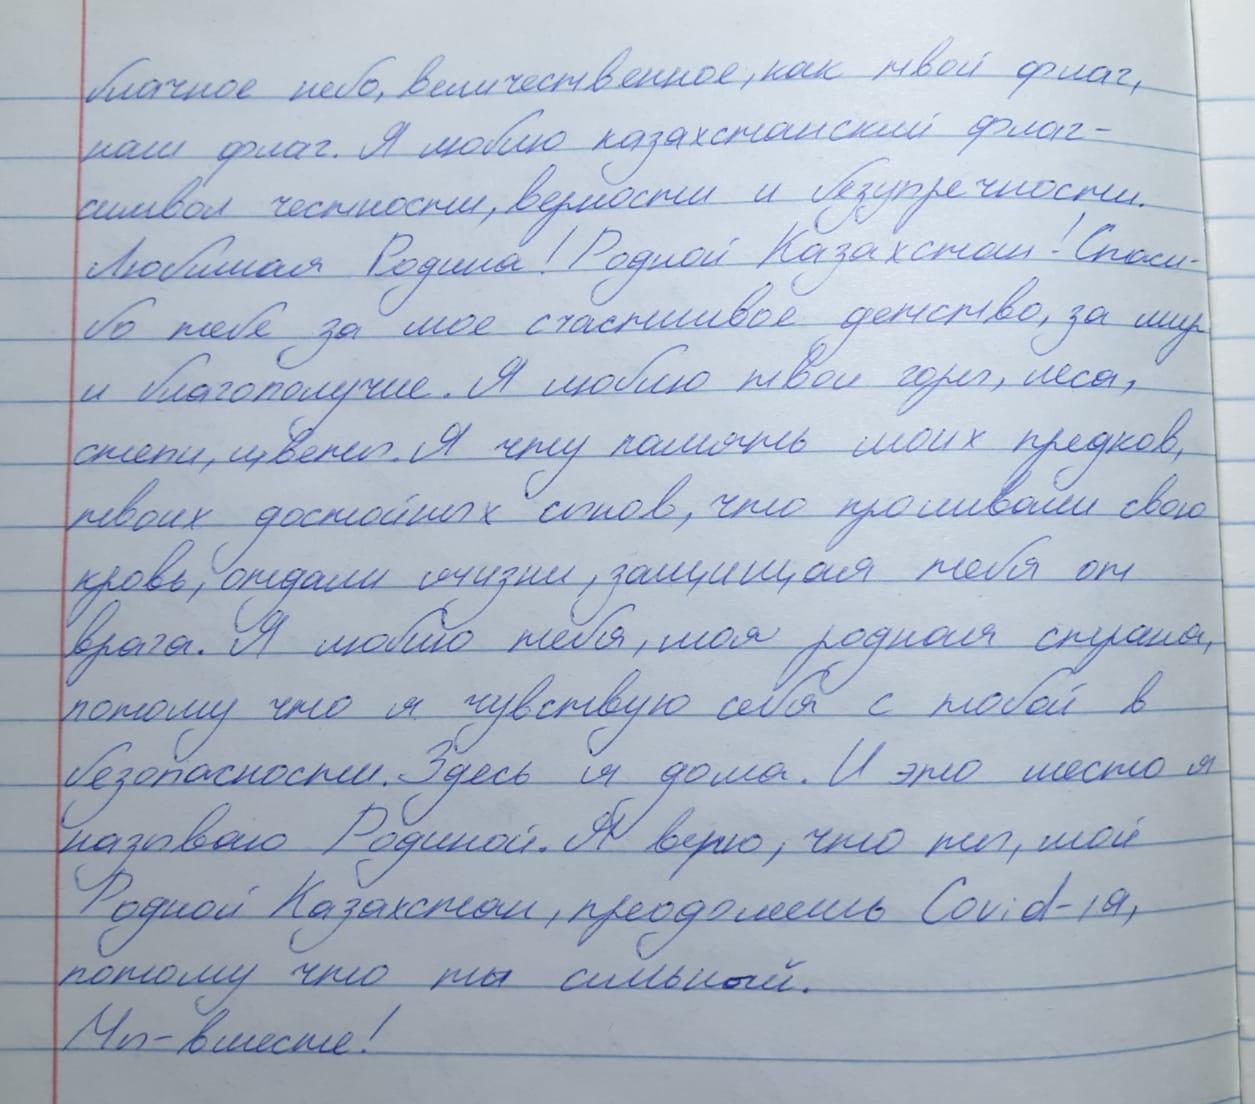 блачное небо, величественное, как твой флаг,
наш флаг. Я люблю казахстанский флаг-
символ честности, верности и безупречности.
Любимая Родина! Родной Казахстан! Спаси-
бо тебе за мое счастливое детство, за мир
и благополучие. Я люблю твои горы, леса,
степи, цветы. Я чту память моих предков,
твоих достойных сынов, что проливали свою
кровь, отдали жизни, защищая тебя от
врага. Я люблю тебя, моя родная страна,
потому что я чувствую себя с тобой в
безопасности. Здесь я дома. И это место я
называю Родиной. Я верю, что ты, мой
Родной Казахстан, преодолеешь Covid-19,
потому что ты сильный.
Мы-вместе!